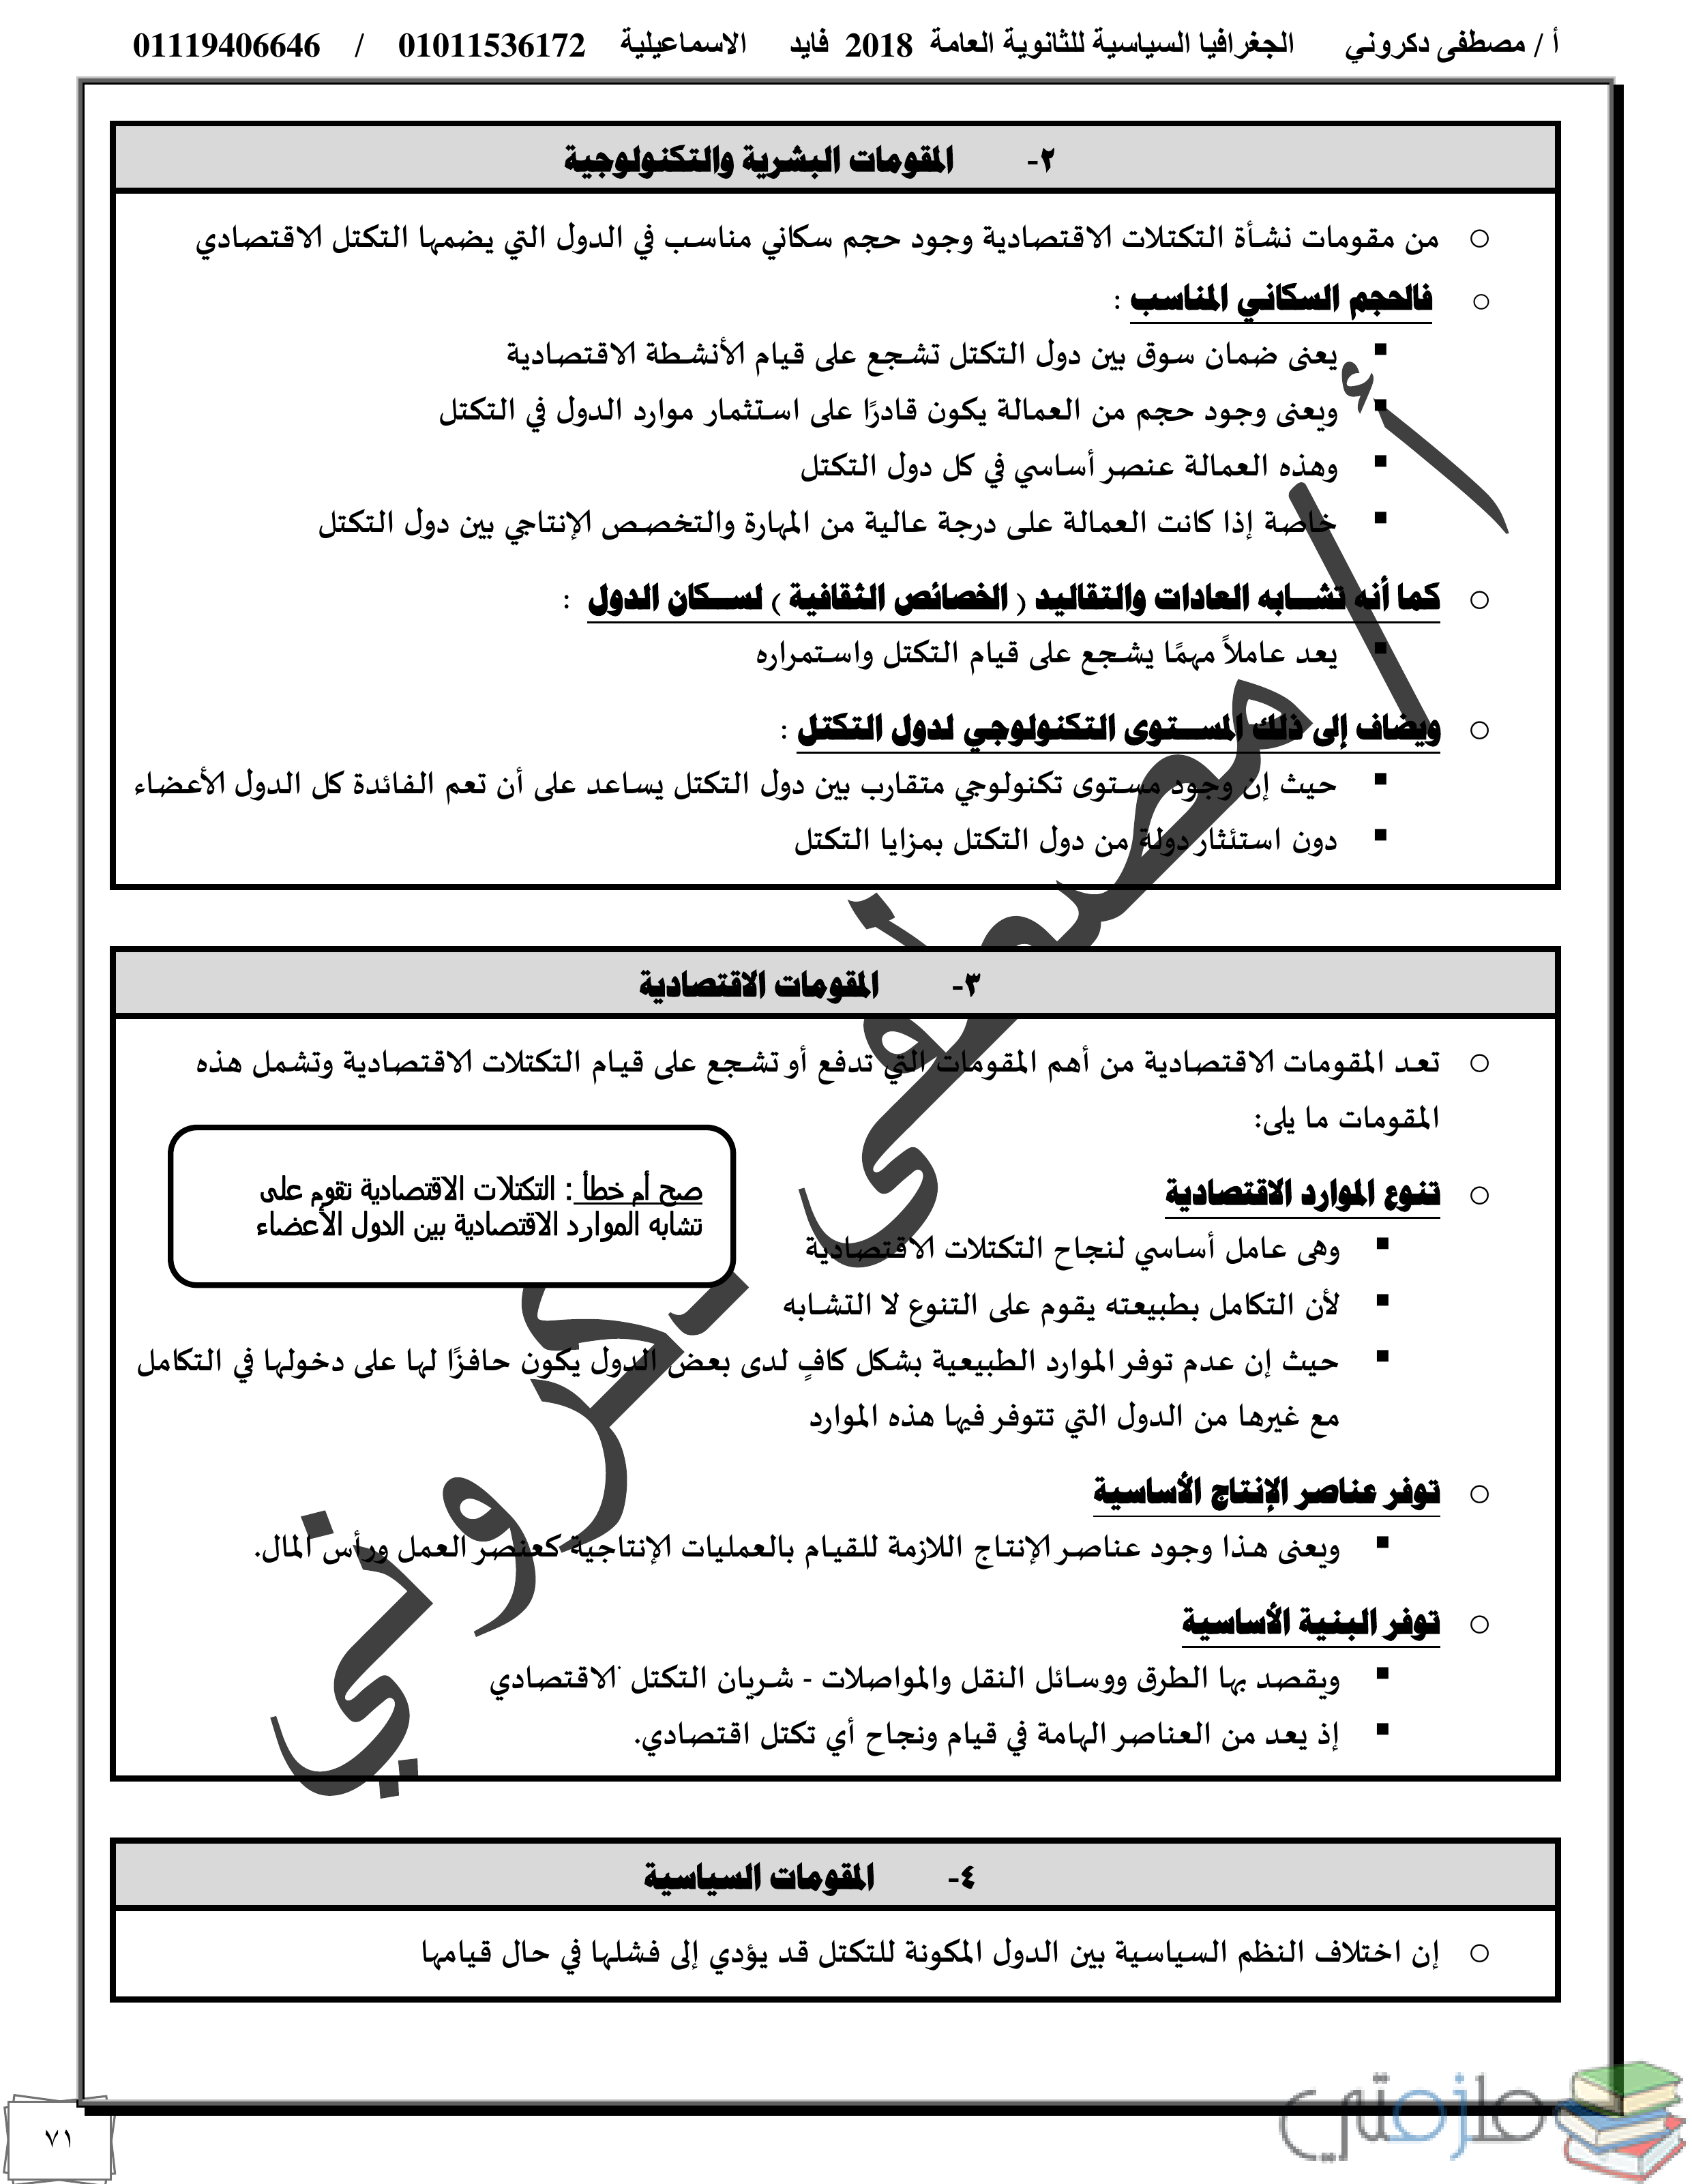 أ / مصطفى دكروني الجغرافيا السياسية للثانوية العامة 2018 فايد الاسماعيلية 01011536172 / 01119406646
٢- المقومات البشرية والتكنولوجية
من مقومات نشأة التكتلات الاقتصادية وجود حجم سكاني مناسب في الدول التي يضمها التكتل الاقتصادي
فالحجم السكاني المناسب :
يعنى ضمان سوق بين دول التكتل تشجع على قيام الأنشطة الاقتصادية
ويعنى وجود حجم من العمالة يكون قادرًا على استثمار موارد الدول في التكتل
وهذه العمالة عنصر أساسي في كل دول التكتل
خاصة إذا كانت العمالة على درجة عالية من المهارة والتخصص الإنتاجي بين دول التكتل
كما أنه تشابه العادات والتقاليد ( الخصائص الثقافية ) لسكان الدول :
يعد عاملاً مهمًا يشجع على قيام التكتل واستمراره
ويضاف إلى ذلك المستوى التكنولوجي لدول التكتل :
حيث إن وجود مستوى تكنولوجي متقارب بين دول التكتل يساعد على أن تعم الفائدة كل الدول الأعضاء
دون استئثار دولة من دول التكتل بمزايا التكتل
٣- المقومات الاقتصادية
تعد المقومات الاقتصادية من أهم المقومات التي تدفع أو تشجع على قيام التكتلات الاقتصادية وتشمل هذه
المقومات ما يلى:
صح أم خطأ : التكتلات الاقتصادية تقوم على
تشابه الموارد الاقتصادية بين الدول الأعضاء
تنوع الموارد الاقتصادية
وهى عامل أساسي لنجاح التكتلات الاقتصادية
لأن التكامل بطبيعته يقوم على التنوع لا التشابه
حيث إن عدم توفر الموارد الطبيعية بشكل كافٍ لدى بعض الدول يكون حافزًا لها على دخولها في التكامل
مع غيرها من الدول التي تتوفر فيها هذه الموارد
توفر عناصر الإنتاج الأساسية
ويعنى هذا وجود عناصر الإنتاج اللازمة للقيام بالعمليات الإنتاجية كعنصر العمل ورأس المال.
توفر البنية الأساسية
ويقصد بها الطرق ووسائل النقل والمواصلات - شريان التكتل الاقتصادي
إذ يعد من العناصر الهامة في قيام ونجاح أي تكتل اقتصادي.
٤- المقومات السياسية
إن اختلاف النظم السياسية بين الدول المكونة للتكتل قد يؤدي إلى فشلها في حال قيامها
أ / مصطفى دكروني
ملزمتي
٧١